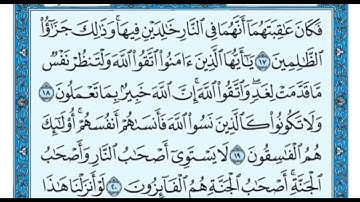 فَكَانَ عَٰقِبَتَهُمَآ أَنَّهُمَا فِى ٱلنَّارِ خَٰلِدَيْنِ فِيهَا ۚ وَذَٰلِكَ جَزَٰٓؤُا۟
ٱلظَّٰلِمِينَ ١٧ يَٰٓأَيُّهَا ٱلَّذِينَ ءَامَنُوا۟ ٱتَّقُوا۟ ٱللَّهَ وَلْتَنظُرْ نَفْسٌ
مَّا قَدَّمَتْ لِغَدٍ ۖ وَٱتَّقُوا۟ ٱللَّهَ ۚ إِنَّ ٱللَّهَ خَبِيرٌۢ بِمَا تَعْمَلُونَ ١٨
وَلَا تَكُونُوا۟ كَٱلَّذِينَ نَسُوا۟ ٱللَّهَ فَأَنسَىٰهُمْ أَنفُسَهُمْ ۚ أُو۟لَٰٓئِكَ
هُمُ ٱلْفَٰسِقُونَ ١٩ لَا يَسْتَوِىٓ أَصْحَٰبُ ٱلنَّارِ وَأَصْحَٰبُ
ٱلْجَنَّةِ ۚ أَصْحَٰبُ ٱلْجَنَّةِ هُمُ ٱلْفَآئِزُونَ ٢٠ لَوْ أَنزَلْنَا هَٰذَا